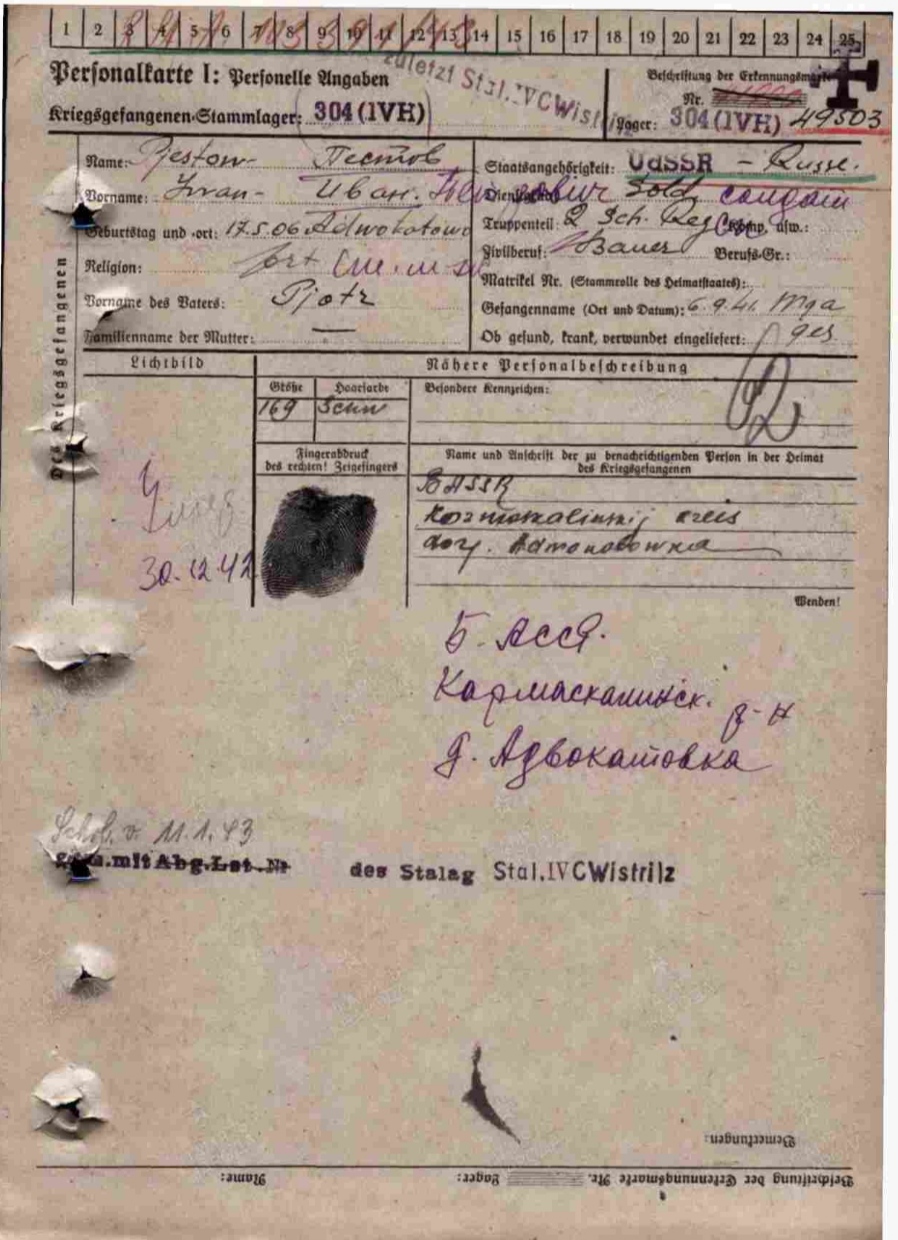 1 2 3 4 5 6 7 8 9 10 11 12 13 14 15 16 17 18 19 20 21 22 23 24 25
Personalkarte I: Personelle Angaben
zuletzt Stal. IVCWistritz
Beschriftung der Erkennungsmarke
Nr. 49503
Kriegsgefangenen-Stammlager: 304 (IVH)
Lager: 304 (IVH)
Des Kriegsgefangenen
Name: Pjestow- Пестов
Vorname: Iwan- Иван.
Geburtstag und -ort: 17.5.06 Adwokatowo
Religion: ort
Vorname des Vaters: Pjotr
Familienname der Mutter: —
Staatsangehörigkeit: UdSSR – Russe.
Dienstgrad: Sold солдат
Truppenteil: 2 Sch. Reg Komp. usw.:
Zivilberuf: Bauer Berufs-Gr.:
Matrikel Nr. (Stammrolle des Heimatstaates):
Gefangenname (Ort und Datum): 6.9.41. Mga
Ob gesund, krank, verwundet eingeliefert: ges
Lichtbild
Nähere Personalbeschreibung
Größe Haarfarbe Besondere Kennzeichen:
169 Schw
Fingerabdruck
des rechten! Zeigefingers
Name und Anschrift der zu benachrichtigenden Person in der Heimat
des Kriegsgefangenen
BASSR
kreis
dorf.
30.12.42
Wenden!
Б. Асся.
Кармаскалинск. р-н
д. Адвокатовка
v. 11.1.43
mit Abg.Lst.Nr des Stalag Stal.IVCWistritz
Bemerkungen:
Beschriftung der Erkennungsmarke Nr. Lager: Name: